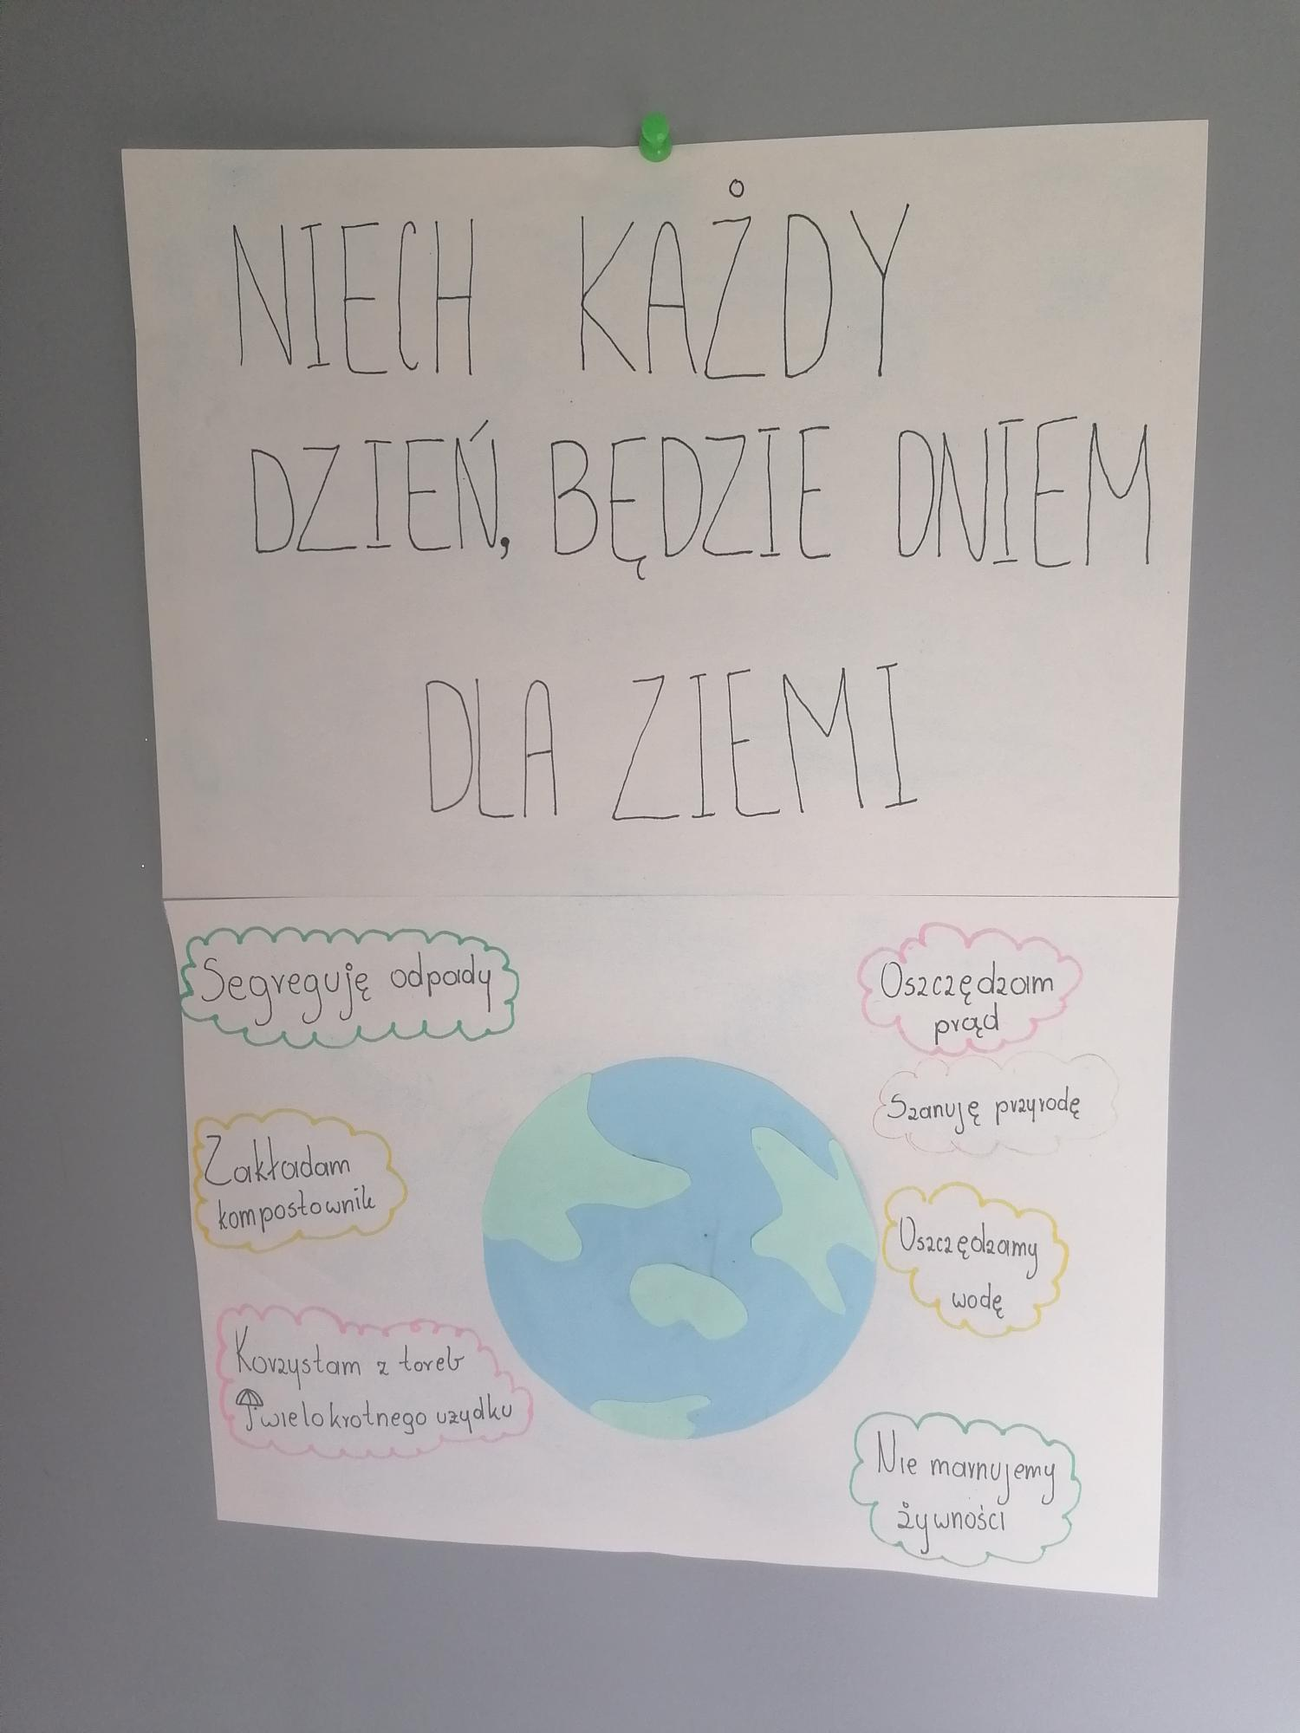 NIECH KAŻDY
DZIEŃ, BĘDZIE DNIEM
DLA ZIEMI
Segreguję odpady
Zakładam
kompostownik
Korzystam z toreb
wielokrotnego uzydku
Oszczędzam
prąd
Szanuję przyrodę
Oszczędzamy
wodę
Nie marnujemy
żywności